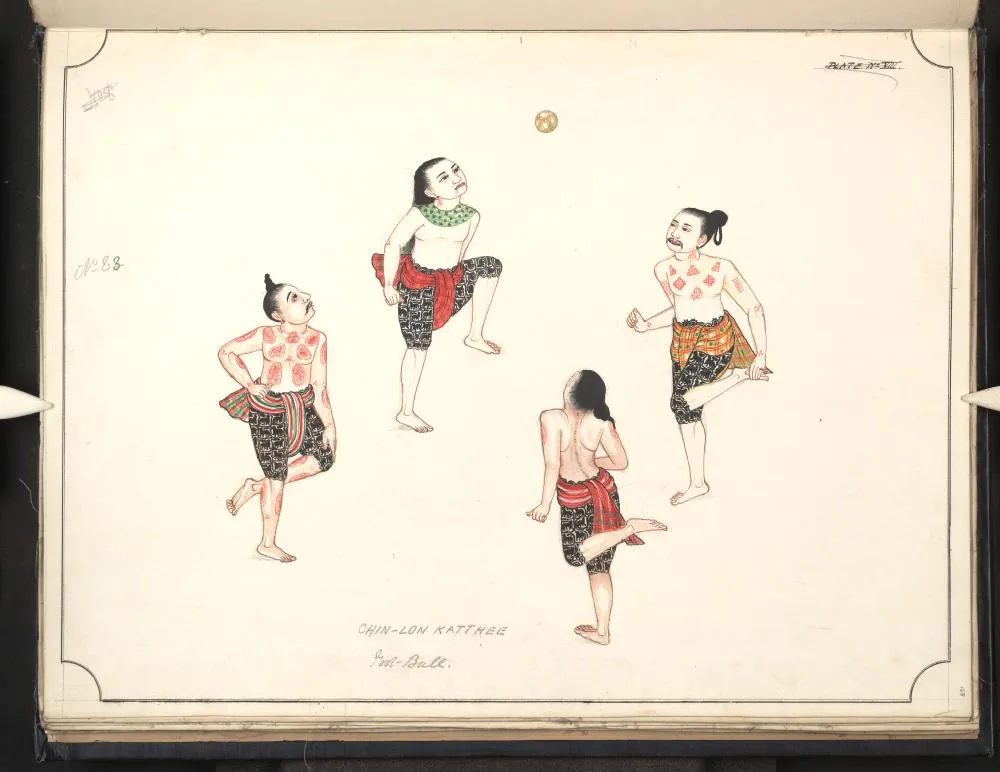 PLATE No VIII.
No 88
CHIN-LON KATTHEE
Foot-Ball.